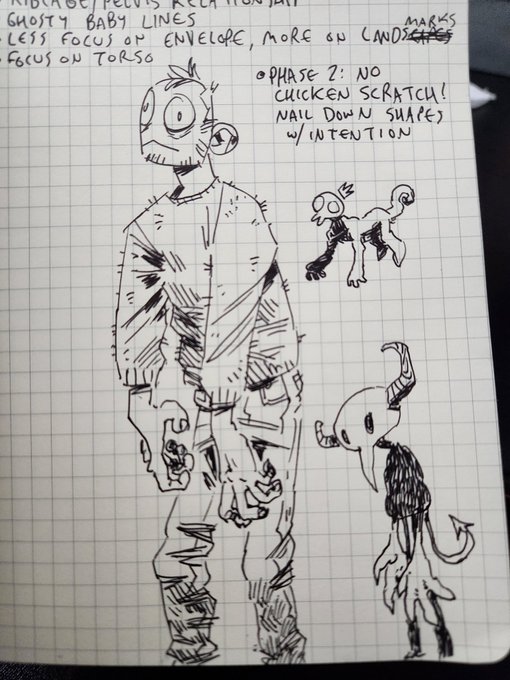 RIBCAGE/PELVIS RELATIONSHIP
GHOSTY BABY LINES
• LESS FOCUS ON ENVELOPE, MORE ON LANDSCAPES MARKS
• FOCUS ON TORSO
• PHASE 2: NO
CHICKEN SCRATCH!
NAIL DOWN SHAPES
W/ INTENTION